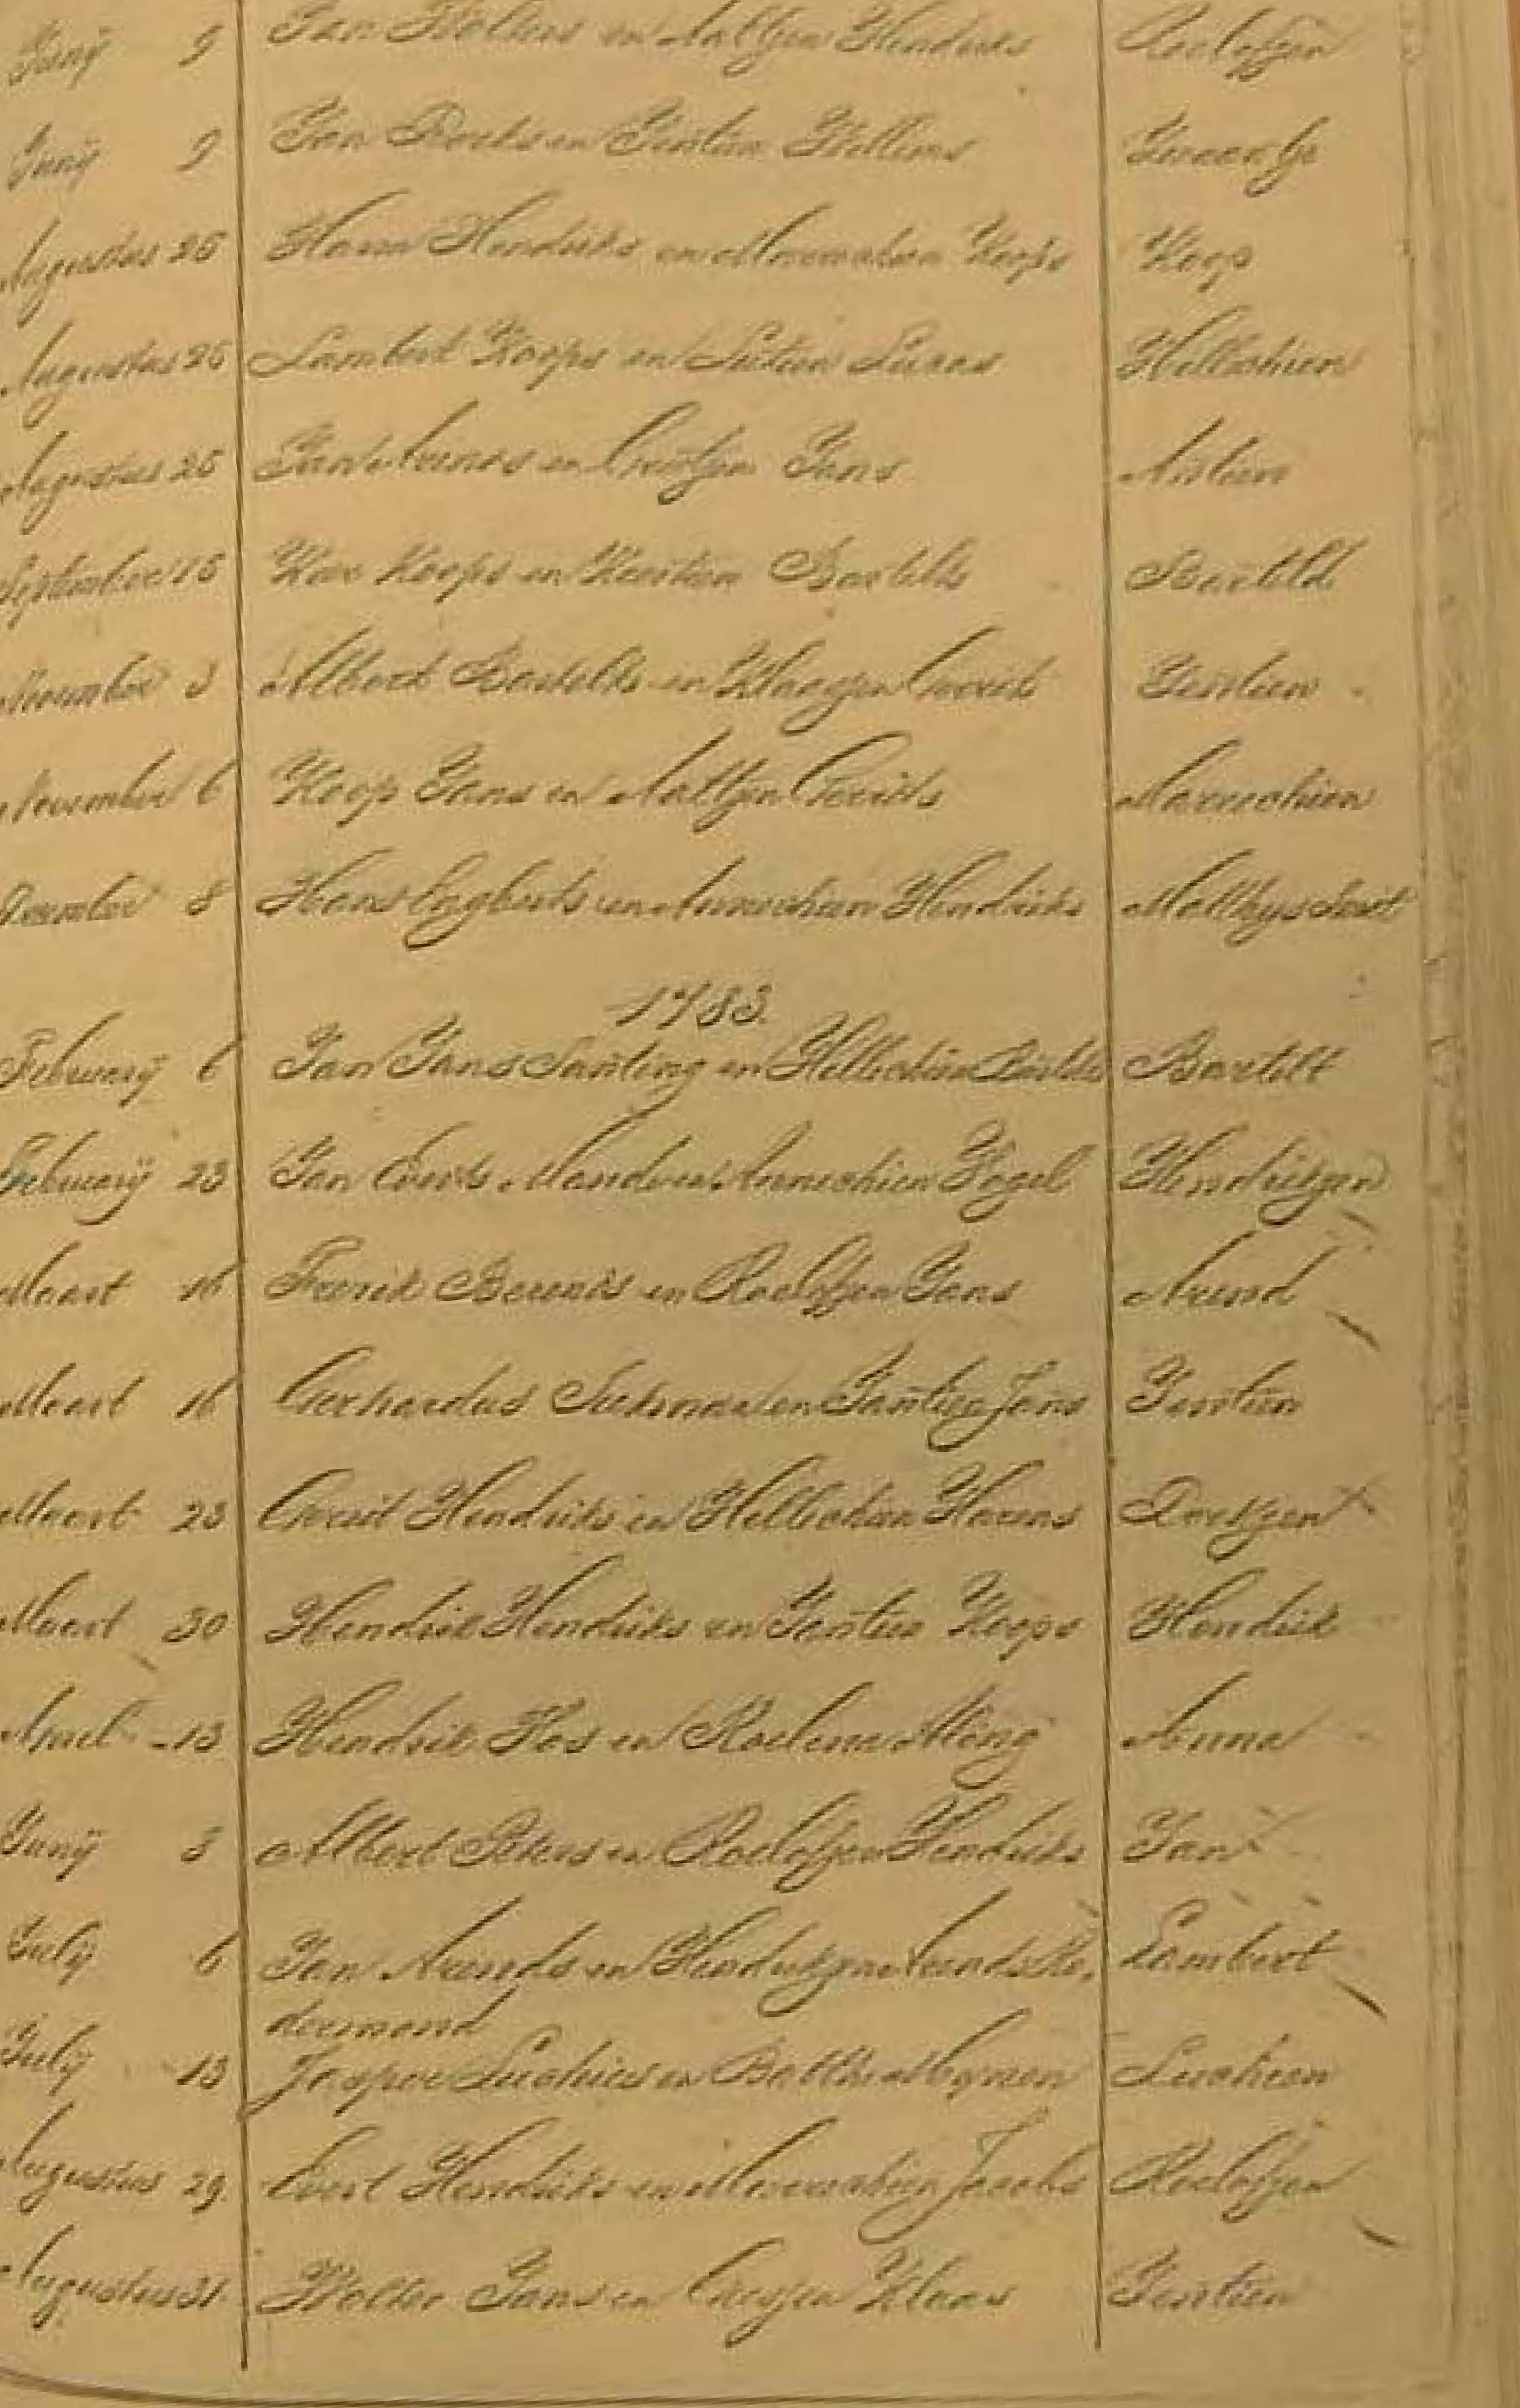 Junij 9 Jan Wolters en Aaltjen Hendriks Roelofjen
Junij 9 Jan Roelfs en Jentien Willems
Augustus 25 Harm Hendriks en Marrechien Koops Koop
Augustus 25 Lambert Koops en Lutien Lucas Hillechien
Augustus 25 Jan en Geertjen Jans
September 15 Koops en Bartelds Barteld
November 3 Albert Bartelds en Klaasjen Gerrits Jentien
November 6 Koop Jans en Aaltjen Gerrits Annechien
December 8 Hans Engberts en Annechien Hendriks
1783.
Februarij 6 Jan Jans Santing en Hillechien Bartelds Bartelt
Februarij 23 Jan Everts en Annechien Vogel Hendrikjen
Maart 16 Frerik Berends en Roelofjen Jans Arend
Maart 16 Gerhardus en Jantien Jans Jantien
Maart 23 Gerrit Hendriks en Hillechien Harms
Maart 30 Hendrik Hendriks en Jantien Koops Hendrik
April 13 Hendrik Vos en Roelina Alting Anna
Junij 3 Albert Peters en Roelofjen Hendriks Jan
Julij 6 Jan Arends en Hendrikjen Arends Ne- Lambert
dermand
Julij 13 Jasper Luchies en Luchien
Augustus 29. Evert Hendriks en Marrechien Jacobs Roelofjen
Augustus 31. Wolter Jans en Geesjen Klaas Jentien